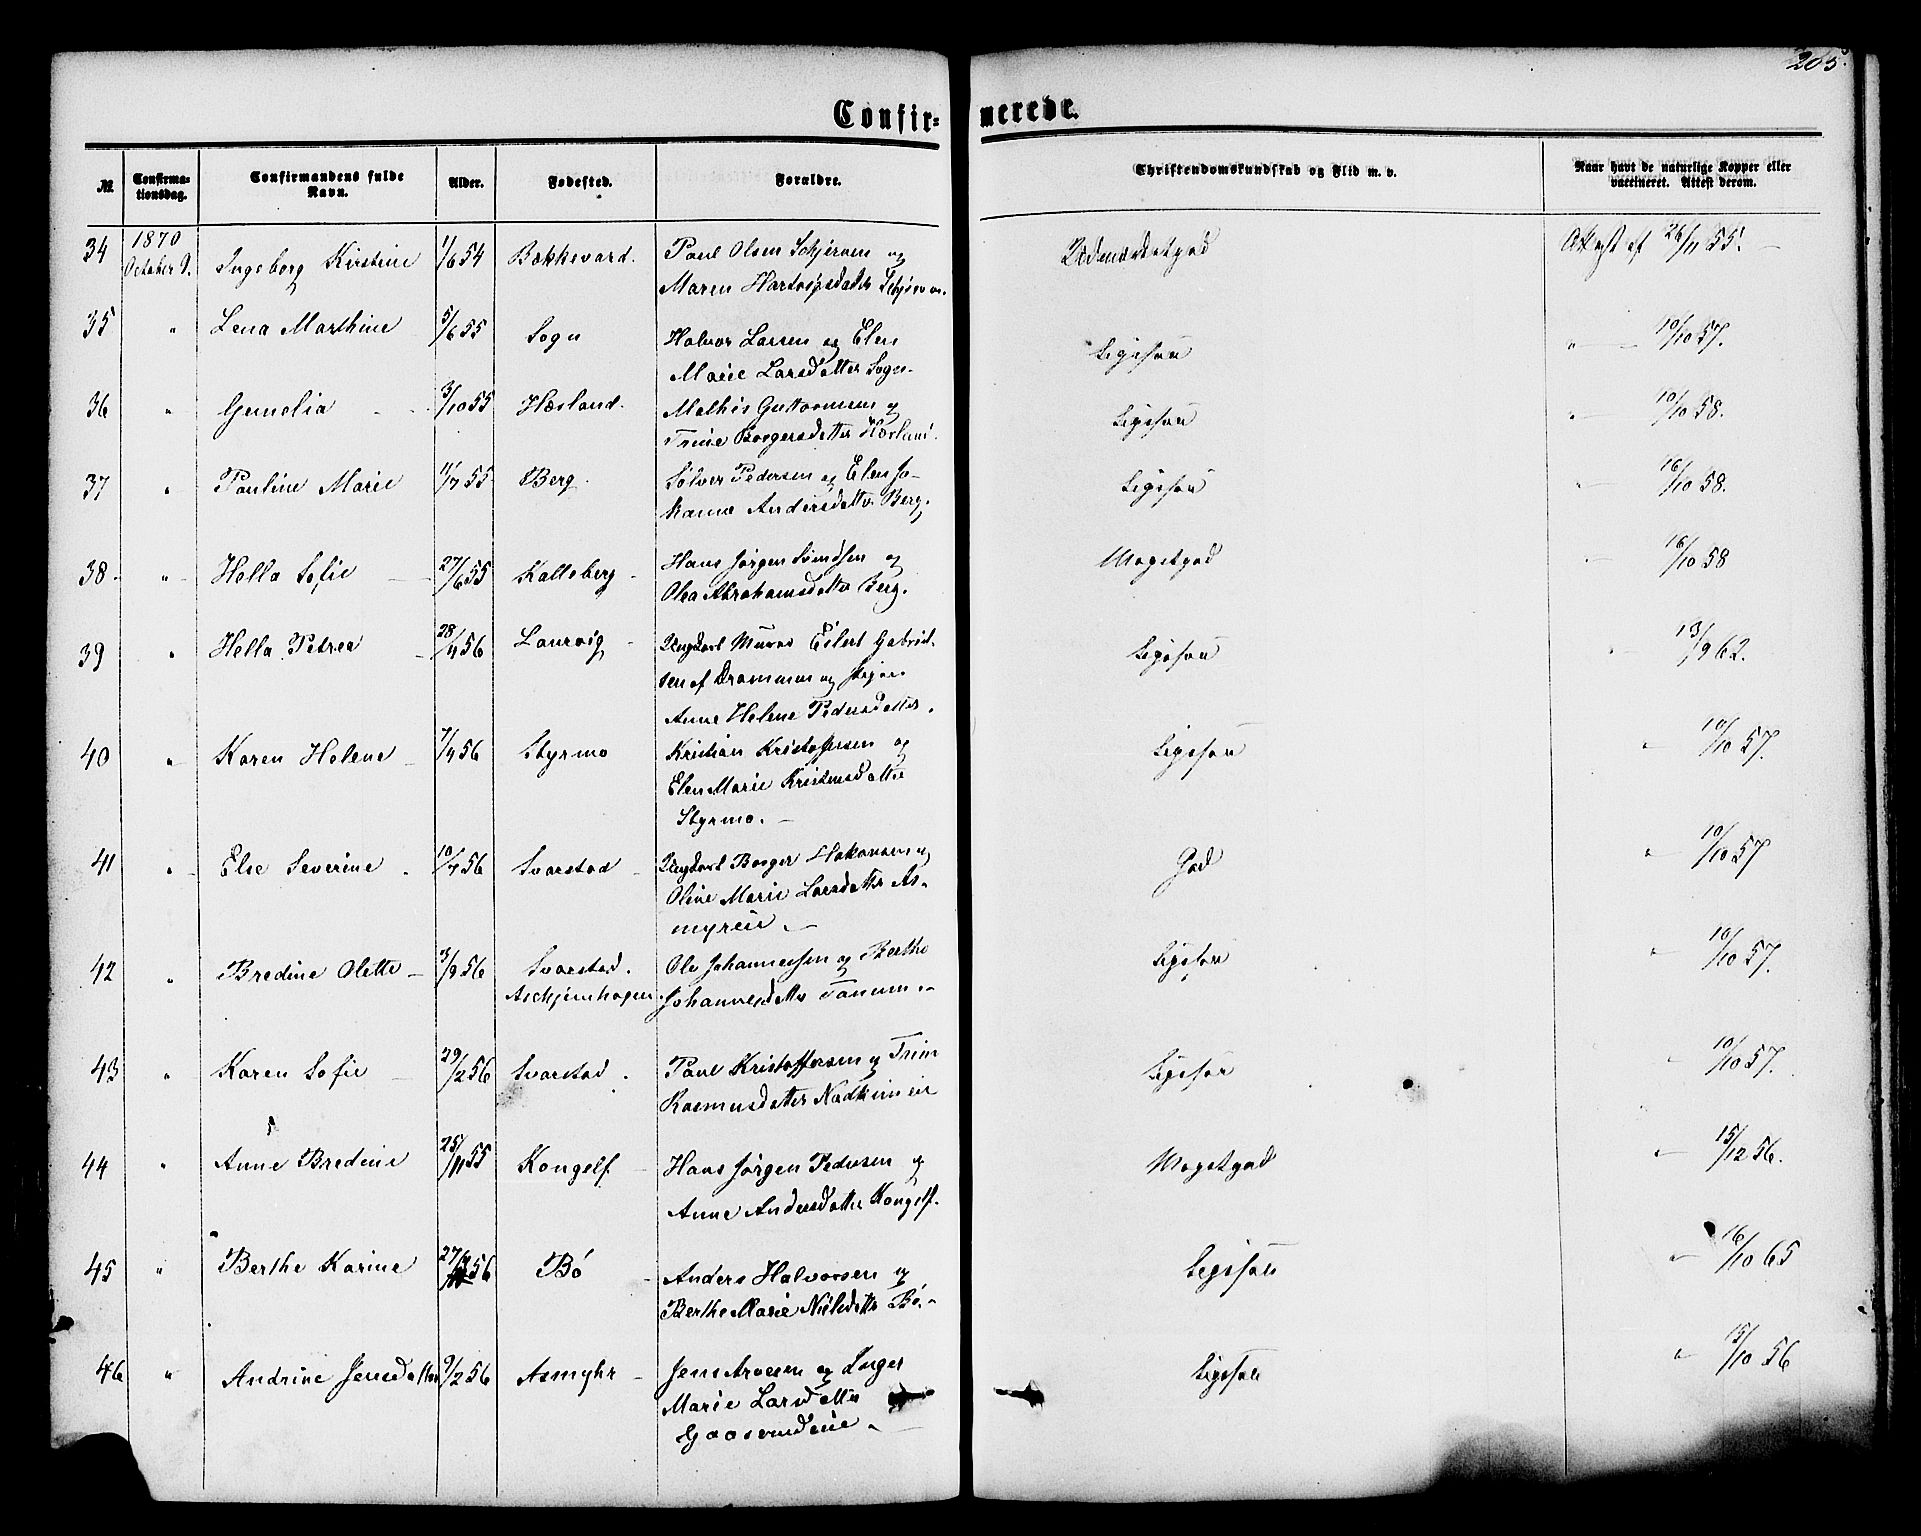 265.
Confir=
merede.
№
Confirma-
tionsdag.
Confirmandens fulde
Navn.
Alder.
Fødested.
Forældre.
Christendomskundskab og Flid m. v.
Naar havt de naturlige Kopper eller
vaccineret. Attest derom.
34 1870 October 9. Ingeborg Kirstine 1/6 54 Bækkevard. Paul Olsen og Udmærketgod Attest af 26/11 55. —
Maren
35 " Lena Marthine 5/6 55 Sogn Halvor Larsen og Elen Ligesaa " 10/10 57.
Marie Larsdatter Sogn.
36 " Gunelia 3/10 55 Hæsland. Mathis Guttormsen og Ligesaa " 10/10 58.
Trine Borgersdatter Hæsland.
37 " Pauline Marie 11/7 55 Berg. Sølver Pedersen og Elen Jo- Ligesaa " 16/10 58.
hanne Andersdatter Berg.
38. " Hella Sofie 27/6 55 Kalleberg Hans Jørgen Svendsen og Megetgod 16/10 58
Olea Abrahamsdatter Berg.
39 " Hella Petrea 28/4 56 Laurvig Ungkarl Murer Eilert Gabriel- Ligesaa " 13/9 62.
sen af Drammen og Pigen
Anne Helene Pedersdatter.
40 " Karen Helene 7/7 56 Styrmo Kristian Kristoffersen og Ligesaa " 10/10 57.
Elen Marie Kristensdatter
Styrmo. —
41 " Else Severine 10/7 56 Svarstad Ungkarl Borger Hakonsen og God " 10/10 57
Oline Marie Larsdatter As-
myreie. —
42 " Bredine Olette 3/9 56 Svarstad. Ole Johannessen og Berthe Ligesaa " 10/10 57.
Askjemhagen. Johannesdatter Tanum. —
43 " Karen Sofie 29/2 56 Svarstad. Paul Kristoffersen og Trine Ligesaa " 10/10 57.
Rasmusdatter
44 " Anne Bredine 25/11 55 Kongelf Hans Jørgen Pedersen og Megetgod " 15/12 56.
Anne Andersdatter Kongelf.
45 " Berthe Karine 27/ 56 Bö Anders Halvorsen og Ligesaa " 16/10 65
Berthe Marie Nielsdatter Bö. —
46 " Andrine Jensdatter 9/2 56 Asmyhr Jens Arvesen og Inger Ligesaa " 15/10 56
Marie Larsdatter
Gaaserudeie. —